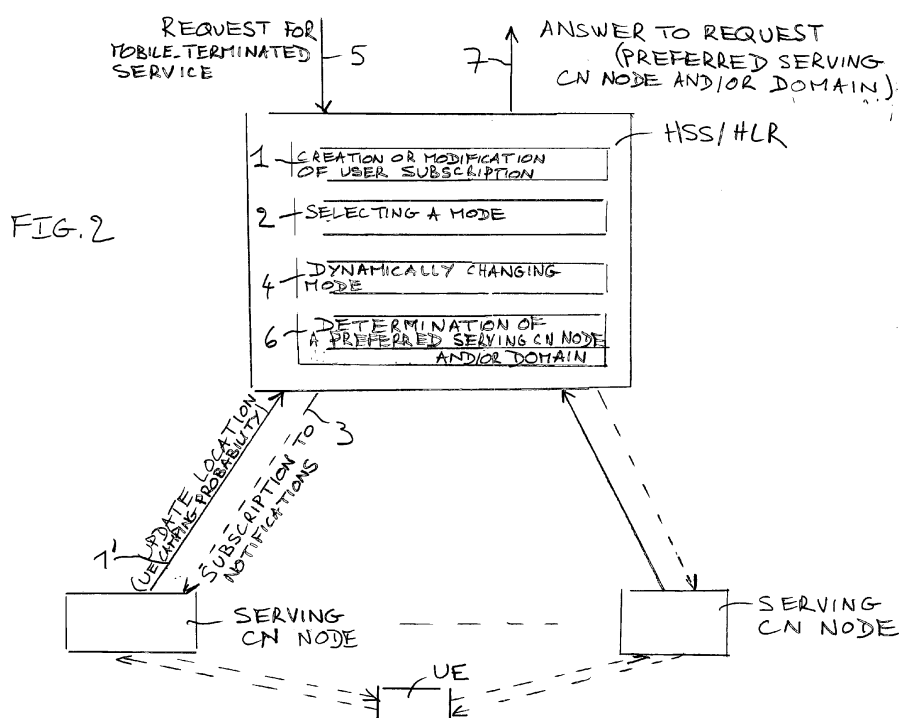 REQUEST FOR
MOBILE-TERMINATED
SERVICE
5
7
ANSWER TO REQUEST
(PREFERRED SERVING
CN NODE AND/OR DOMAIN)
HSS/HLR
1
CREATION OR MODIFICATION
OF USER SUBSCRIPTION
FIG.2
2
SELECTING A MODE
4
DYNAMICALLY CHANGING
MODE
6
DETERMINATION OF
A PREFERRED SERVING CN NODE
AND/OR DOMAIN
3
UPDATE LOCATION
(UE CAMPING PROBABILITY)
1'
SUBSCRIPTION TO
NOTIFICATIONS
SERVING
CN NODE
SERVING
CN NODE
UE